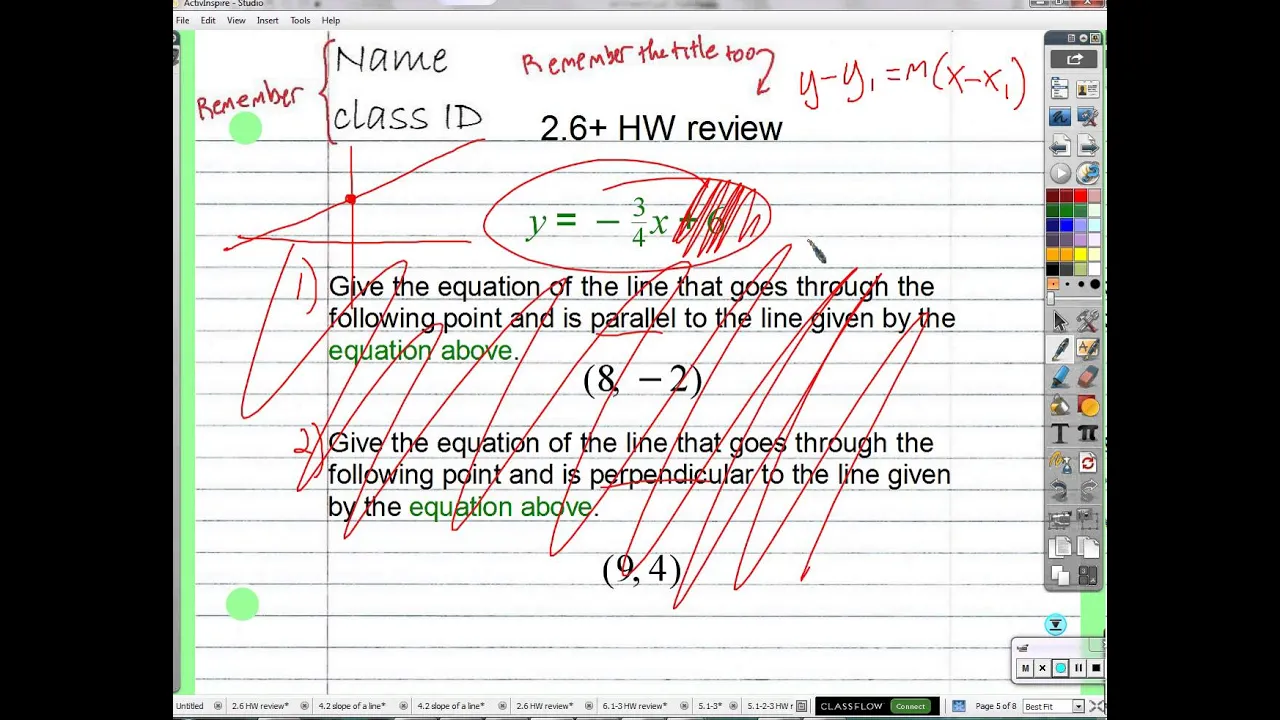 ActivInspire - Studio
File Edit View Insert Tools Help
Name
Remember the title too
y-y₁=m(x-x₁)
Remember
class ID
2.6+ HW review
y = - 3/4 x + 6
1) Give the equation of the line that goes through the
following point and is parallel to the line given by the
equation above.
(8, -2)
2) Give the equation of the line that goes through the
following point and is perpendicular to the line given
by the equation above.
(9, 4)
Untitled 2.6 HW review* 4.2 slope of a line* 4.2 slope of a line* 2.6 HW review* 6.1-3 HW review* 5.1-3* 5.1-2-3 HW r CLASSFLOW Connect Page 5 of 8 Best Fit